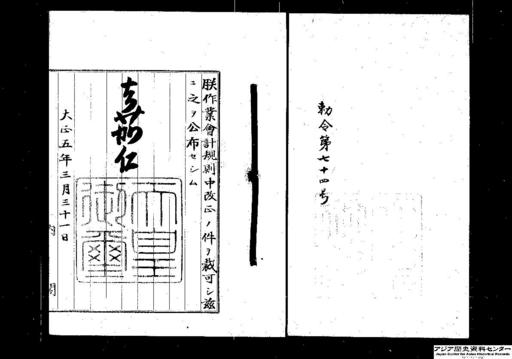 勅令第七十四号
朕作業會計規則中改正ノ件ヲ裁可シ茲
ニ之ヲ公布セシム
嘉仁
天皇御璽
大正五年三月三十一日
内閣
アジア歴史資料センター
Japan Center for Asian Historical Records